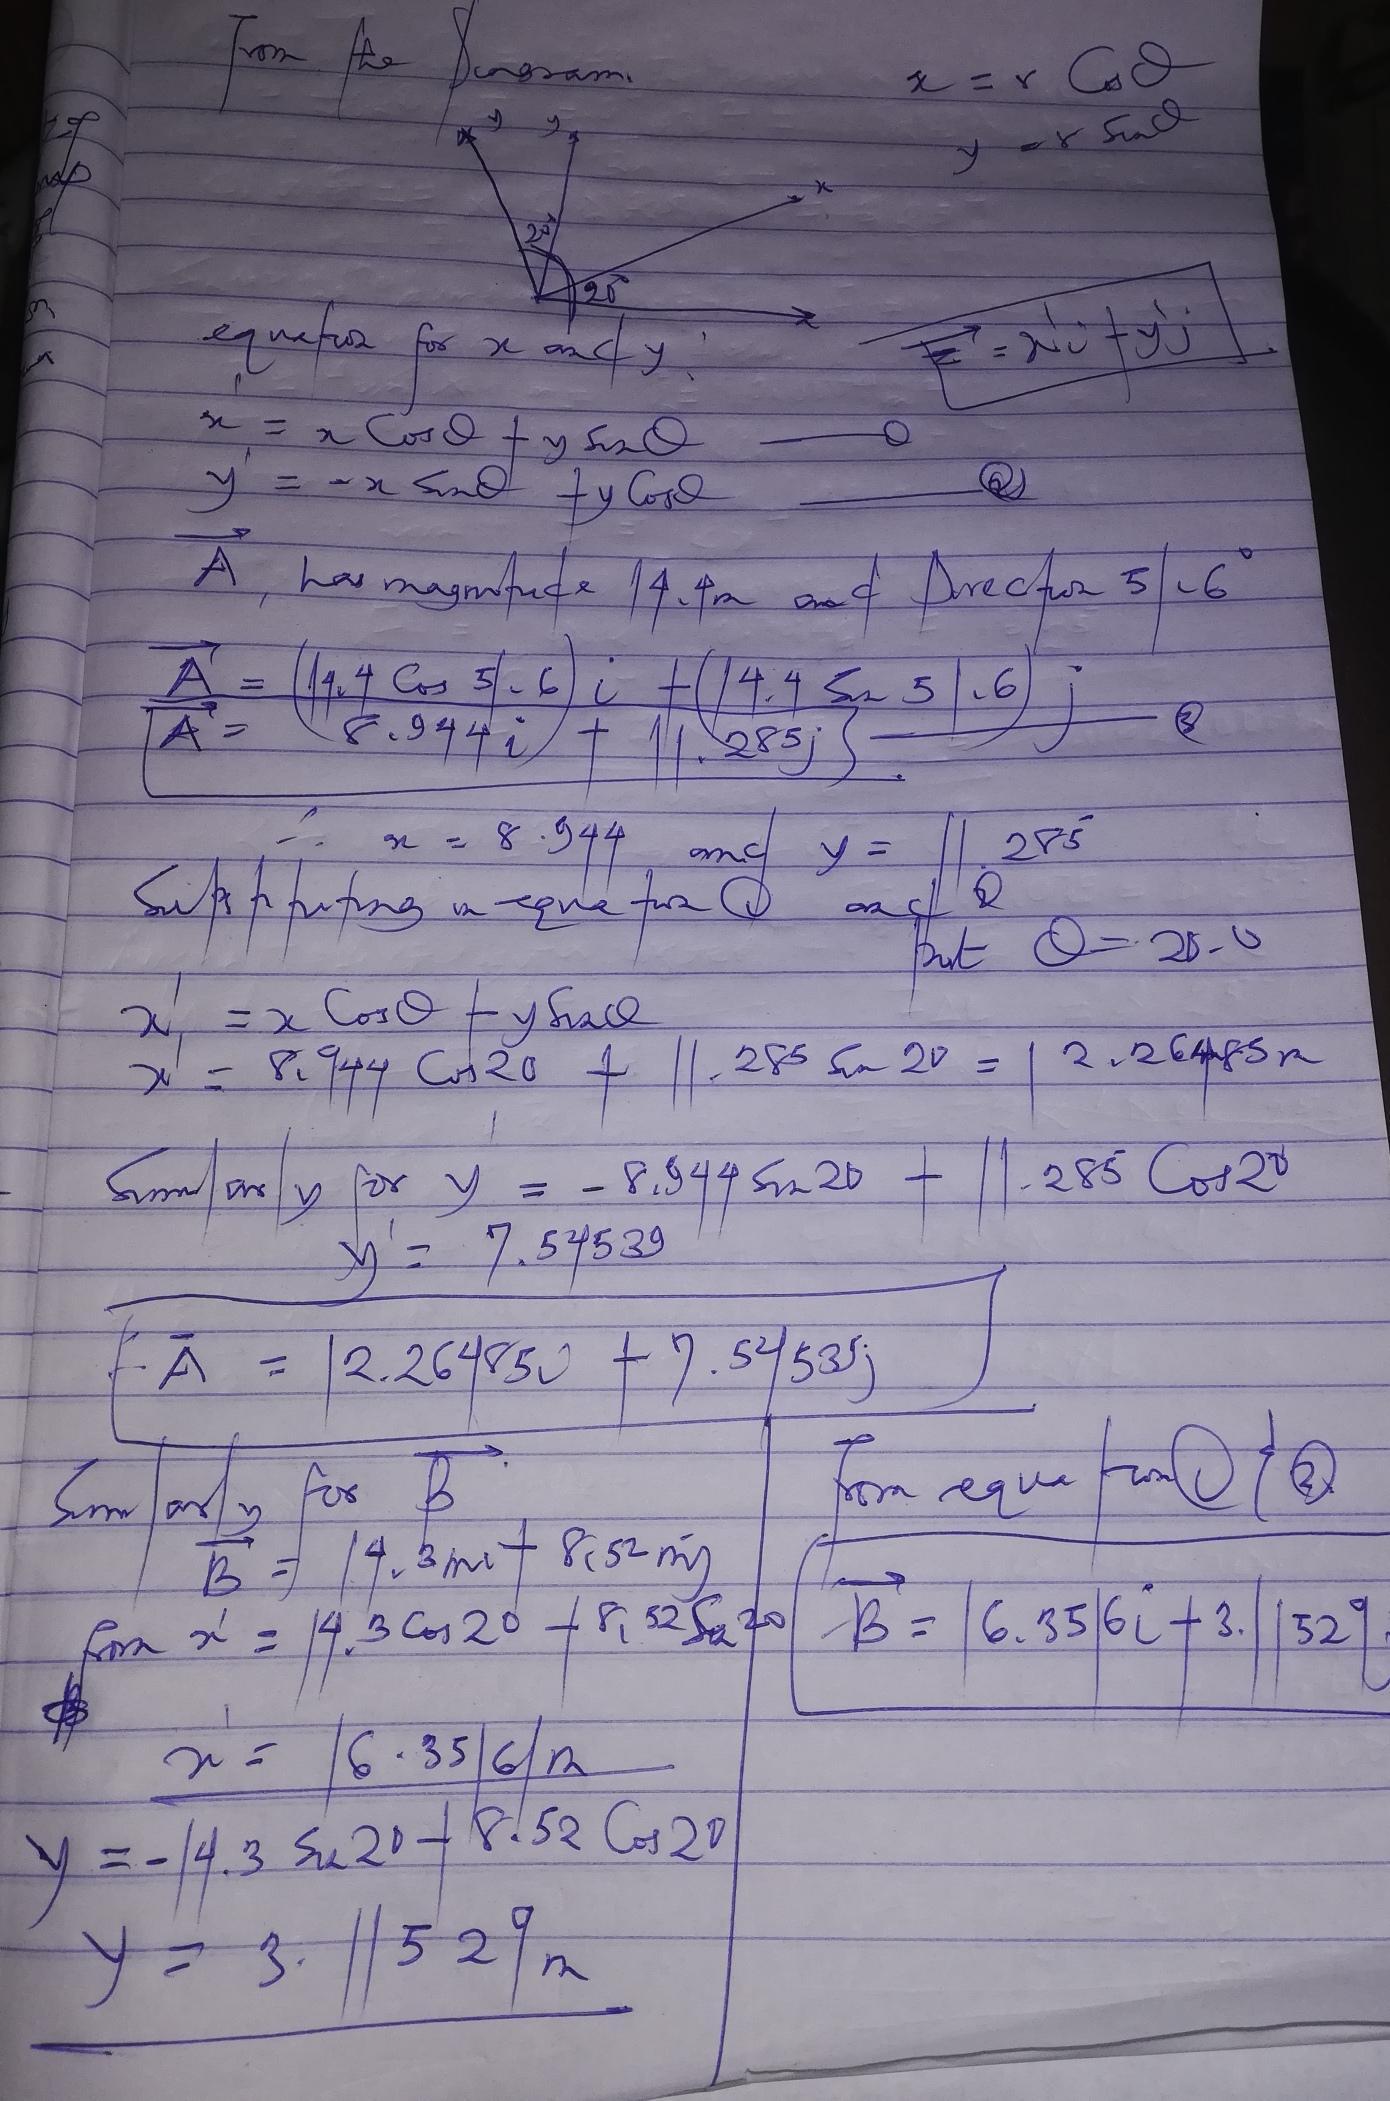 From the Diagram.
x = r Cosθ
y = r Sinθ
y' y
x
20°
20°
x
equation for x and y'
x' = x Cosθ + y Sinθ — ①
y' = -x Sinθ + y Cosθ — ②
= x'i + y'j
A, has magnitude 14.4m and Direction 51.6°
A = (14.4 Cos 51.6) i + (14.4 Sin 51.6) j
A = 8.944i + 11.285j — ③
∴ x = 8.944 and y = 11.285
in equation ① and ②
but θ = 20.0
x' = x Cosθ + y Sinθ
x' = 8.944 Cos20 + 11.285 Sin 20 = 12.26485m
Similarly for y' = -8.944 Sin20 + 11.285 Cos20
y' = 7.54539
A = 12.26485i + 7.54539j
Similarly for B
B = 14.3mi + 8.52mj
from x' = 14.3 Cos20 + 8.52 Sin20
x' = 16.35161m
y = -14.3 Sin20 + 8.52 Cos20
y = 3.11529m
From equation ① & ②
B = 16.3516i + 3.11529